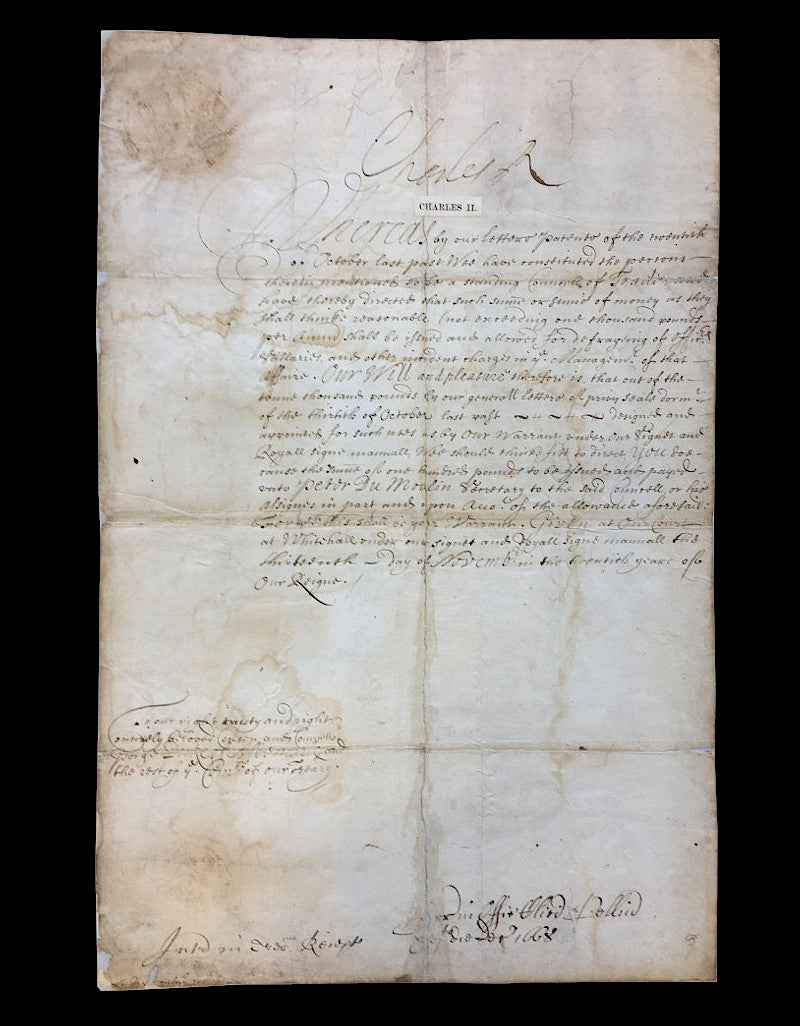 Charles R
CHARLES II.
Whereas by our letters Patents of the twentith
of October last past Wee have constituted the persons
therein mentioned to be a standing Councell of Trade and
have thereby directed that such sume or sums of money as they
shall thinke reasonable (not exceeding one thousand pounds
per Annū shall be issued and allowed for defraying of
Sallaries and other incident charges in yᵉ Managemᵗ of that
affaire. Our Will and pleasure therefore is, that out of the
tenne thousand pounds by our generall letters of privy seale dormᵗ
of the thirtith of October last past designed and
appointed for such uses as by Our Warrant under Our Signet and
Royall signe manuall Wee should thinke fitt to direct YOU doe
cause the sume of one hundred pounds to be issued and payed
unto Peter Du Moulin Secretary to the said Councell or his
assignes in part and upon Accoᵗ of the allowance aforesaid:
this shall be your Warrant. Given at Our Court
at Whitehall under our signet and Royall signe manuall the
thirteenth day of Novemb in the twentith yeare of
Our Reigne.
To our right trusty and right
entirely beloved Cousin and Councellor
George
the rest of yᵉ of our Treary.
1668